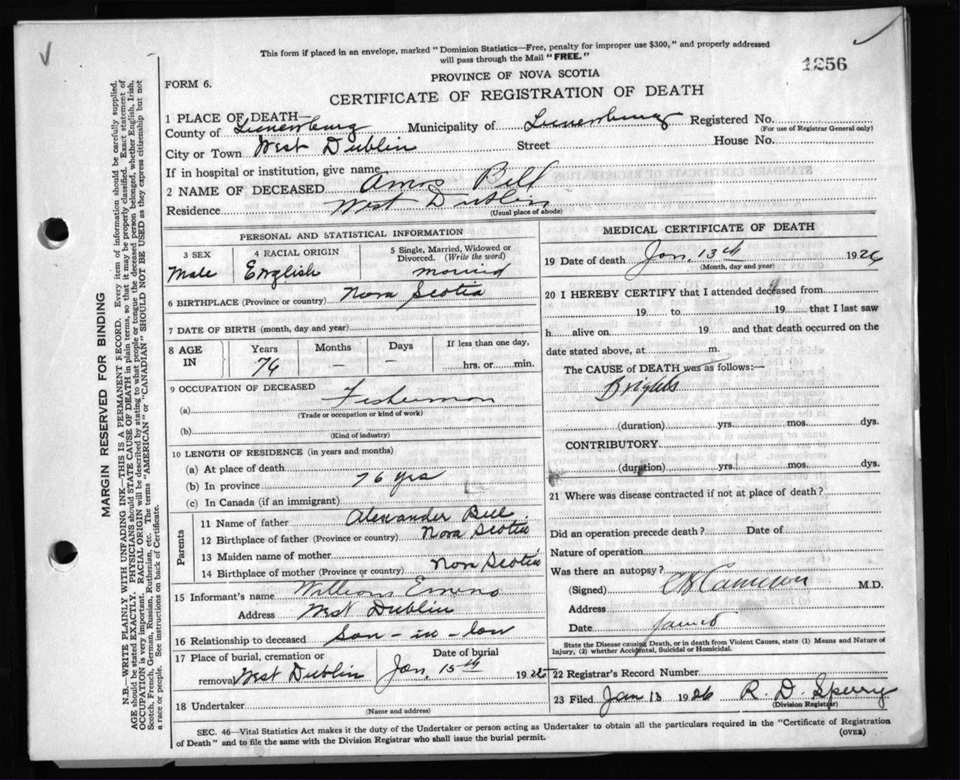 This form if placed in an envelope, marked "Dominion Statistics—Free, penalty for improper use $300," and properly addressed
will pass through the Mail "FREE."
1256
PROVINCE OF NOVA SCOTIA
FORM 6.
CERTIFICATE OF REGISTRATION OF DEATH
1 PLACE OF DEATH—
County of Lunenburg Municipality of Lunenburg Registered No.
(For use of Registrar General only)
City or Town West Dublin Street House No.
If in hospital or institution, give name
2 NAME OF DECEASED Amos Bell
Residence West Dublin
(Usual place of abode)
PERSONAL AND STATISTICAL INFORMATION
3 SEX 4 RACIAL ORIGIN 5 Single, Married, Widowed or
Divorced. (Write the word)
Male English married
6 BIRTHPLACE (Province or country) Nova Scotia
7 DATE OF BIRTH (month, day and year)
8 AGE IN Years Months Days If less than one day,
76 — — hrs. or min.
9 OCCUPATION OF DECEASED
(a) Fisherman
(Trade or occupation or kind of work)
(b)
(Kind of industry)
10 LENGTH OF RESIDENCE (in years and months)
(a) At place of death
(b) In province 76 yrs
(c) In Canada (if an immigrant)
Parents
11 Name of father Alexander Bell
12 Birthplace of father (Province or country) Nova Scotia
13 Maiden name of mother
14 Birthplace of mother (Province or country) Nova Scotia
15 Informant's name William
Address West Dublin
16 Relationship to deceased Son-in-law
17 Place of burial, cremation or Date of burial
removal West Dublin Jan, 15th 1926
18 Undertaker
(Name and address)
MEDICAL CERTIFICATE OF DEATH
19 Date of death Jan, 13th 1926
(Month, day and year)
20 I HEREBY CERTIFY that I attended deceased from
19 to 19 that I last saw
h alive on 19 and that death occurred on the
date stated above, at m.
The CAUSE of DEATH was as follows:—
Brights
(duration) yrs. mos. dys.
CONTRIBUTORY
(duration) yrs. mos. dys.
21 Where was disease contracted if not at place of death?
Did an operation precede death? Date of
Nature of operation
Was there an autopsy?
(Signed) Cameron M.D.
Address
Date
State the Disease causing Death, or in death from Violent Causes, state (1) Means and Nature of
Injury, (2) whether Accidental, Suicidal or Homicidal.
22 Registrar's Record Number
23 Filed Jan 13 1926 R. D. Sperry
(Division Registrar)
SEC. 46—Vital Statistics Act makes it the duty of the Undertaker or person acting as Undertaker to obtain all the particulars required in the "Certificate of Registration
of Death" and to file the same with the Division Registrar who shall issue the burial permit. (OVER)
MARGIN RESERVED FOR BINDING
N.B.—WRITE PLAINLY WITH UNFADING INK—THIS IS A PERMANENT RECORD. Every item of information should be carefully supplied.
AGE should be stated EXACTLY. PHYSICIANS should STATE CAUSE OF DEATH in plain terms, so that it may be properly classified. Exact statement of
OCCUPATION is very important. RACIAL ORIGIN will be described by stating to what people or tongue the deceased person belonged, whether English, Irish,
Scotch, French, German, Russian, Ruthenian, etc. The terms "AMERICAN" or "CANADIAN" SHOULD NOT BE USED as they express citizenship but not
a race or people. See instructions on back of Certificate.